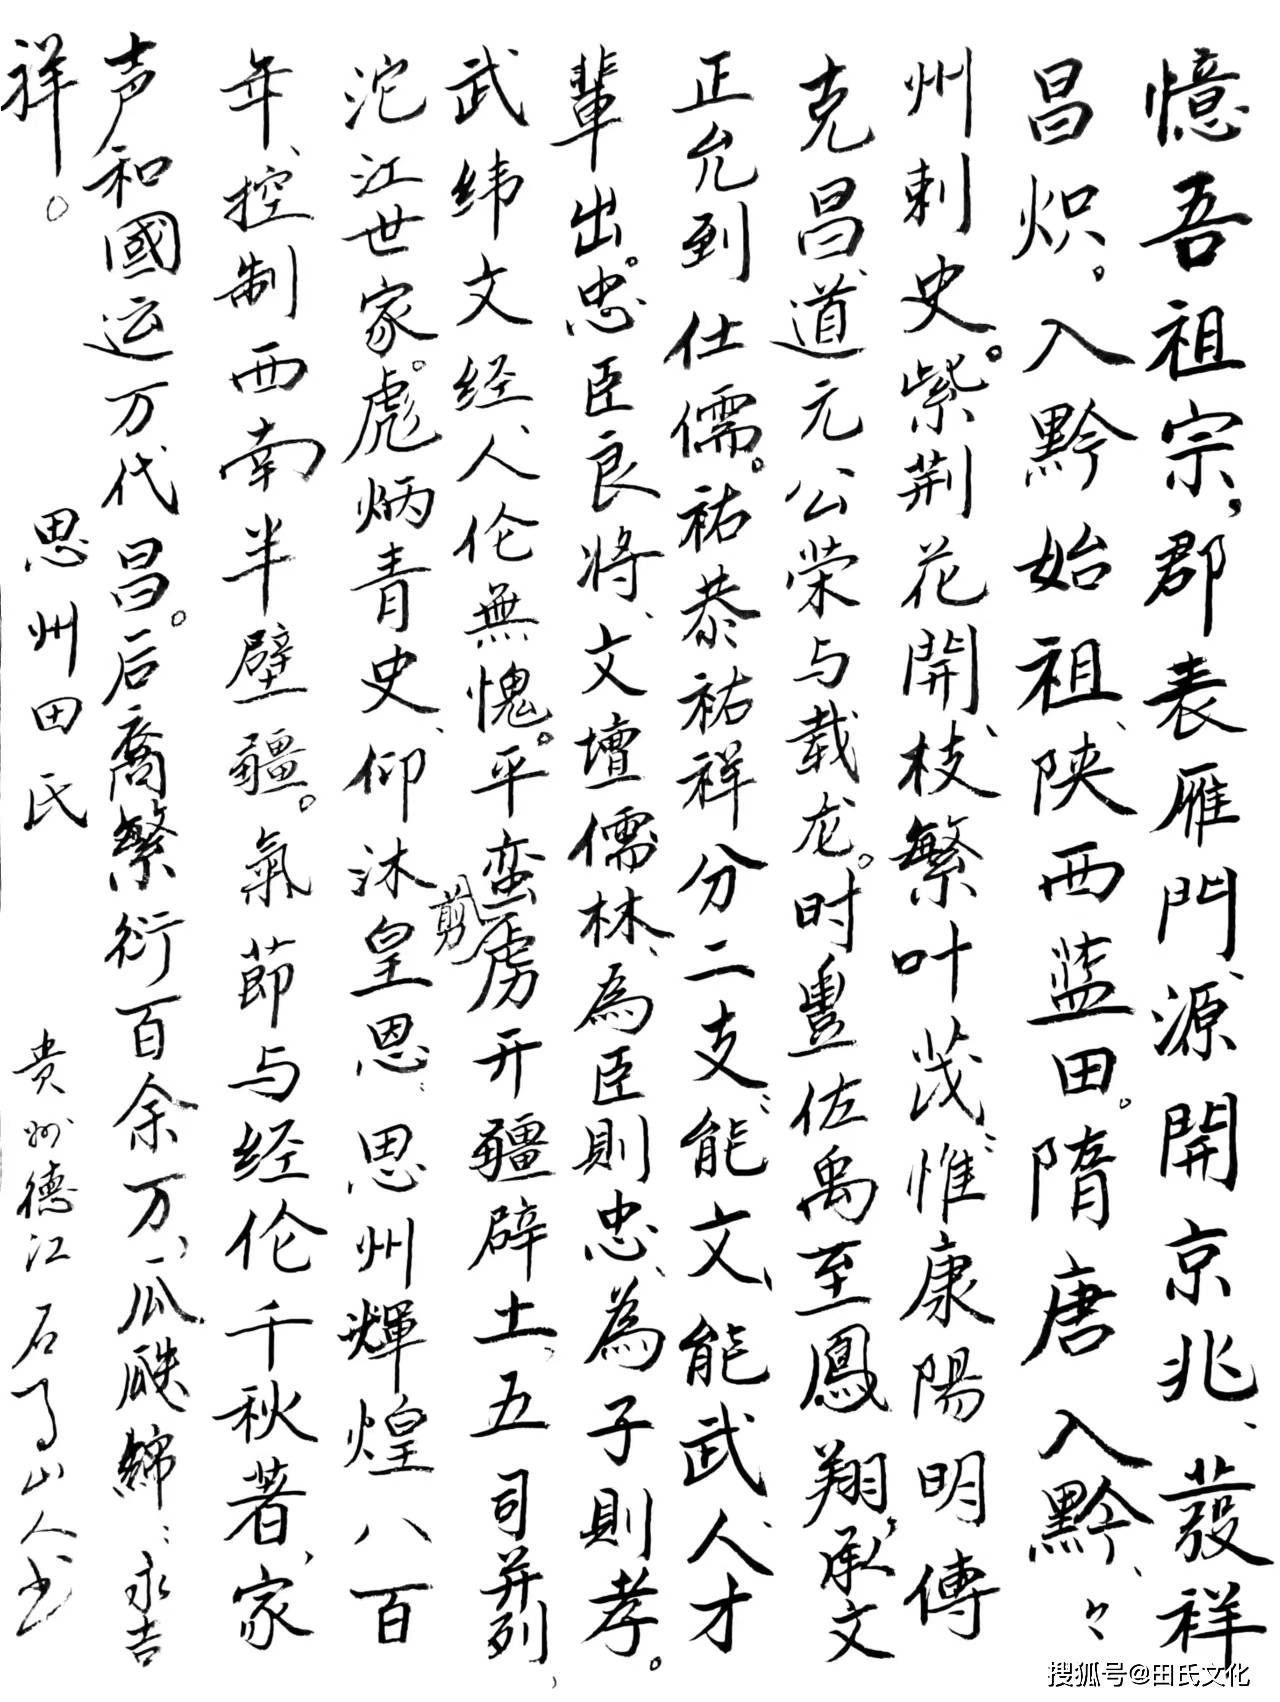 憶吾祖宗,郡表雁門、源開京兆、發祥
昌炽。入黔始祖、陕西蓝田。隋唐入黔、々
州刺史。紫荆花開、枝繁叶茂、惟康陽明傳
克昌、道元公荣与载龙。时豊佐禹至鳳翔,承文
正允到仕儒。祐恭祐祥分二支、能文、能武、人才
輩出。忠臣良将、文壇儒林、為臣則忠、為子則孝。
武纬文经、人伦無愧。平蛮剪虏开疆辟土、五司并列、
沱江世家。彪炳青史、仰沐皇恩、思州輝煌八百
年、控制西南半壁疆。氣節与经伦千秋著、家
声和國运万代昌。后裔繁衍百余万、瓜瓞綿綿、永吉
祥。
思州田氏
贵州德江石马山人书
搜狐号@田氏文化